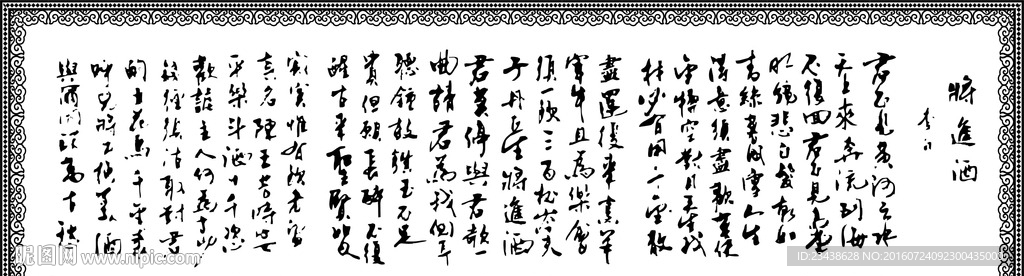 將進酒
李白
君不見黃河之水
天上來奔流到海
不復回君不見高堂
明鏡悲白髮朝如
青絲暮成雪人生
得意須盡歡莫使
金樽空對月天生我
材必有用千金散
盡還復來烹羊
宰牛且為樂會
須一飲三百杯岑夫
子丹丘生將進酒
君莫停與君歌一
曲請君為我側耳
聽鐘鼓饌玉不足
貴但願長醉不復
醒古來聖賢皆
寂寞惟有飲者留
其名陳王昔時宴
平樂斗酒十千恣
歡謔主人何為言少
錢徑須沽取對君
酌五花馬千金裘
呼兒將出換美酒
與爾同銷萬古愁
昵图网
www.nipic.com
ID:23438628 NO:20160724092300435001